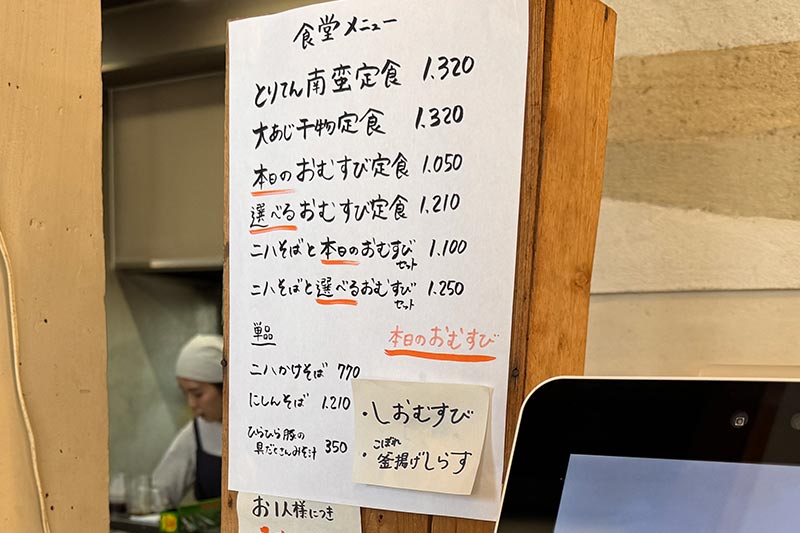 食堂メニュー
とりてん南蛮定食 1.320
大あじ干物定食 1.320
本日のおむすび定食 1.050
選べるおむすび定食 1.210
二八そばと本日のおむすびセット 1.100
二八そばと選べるおむすびセット 1.250
単品
二八かけそば 770
にしんそば 1.210
ひらひら豚の
具だくさんみそ汁 350
本日のおむすび
・しおむすび
・こぼれ釜揚げしらす
お1人様につき